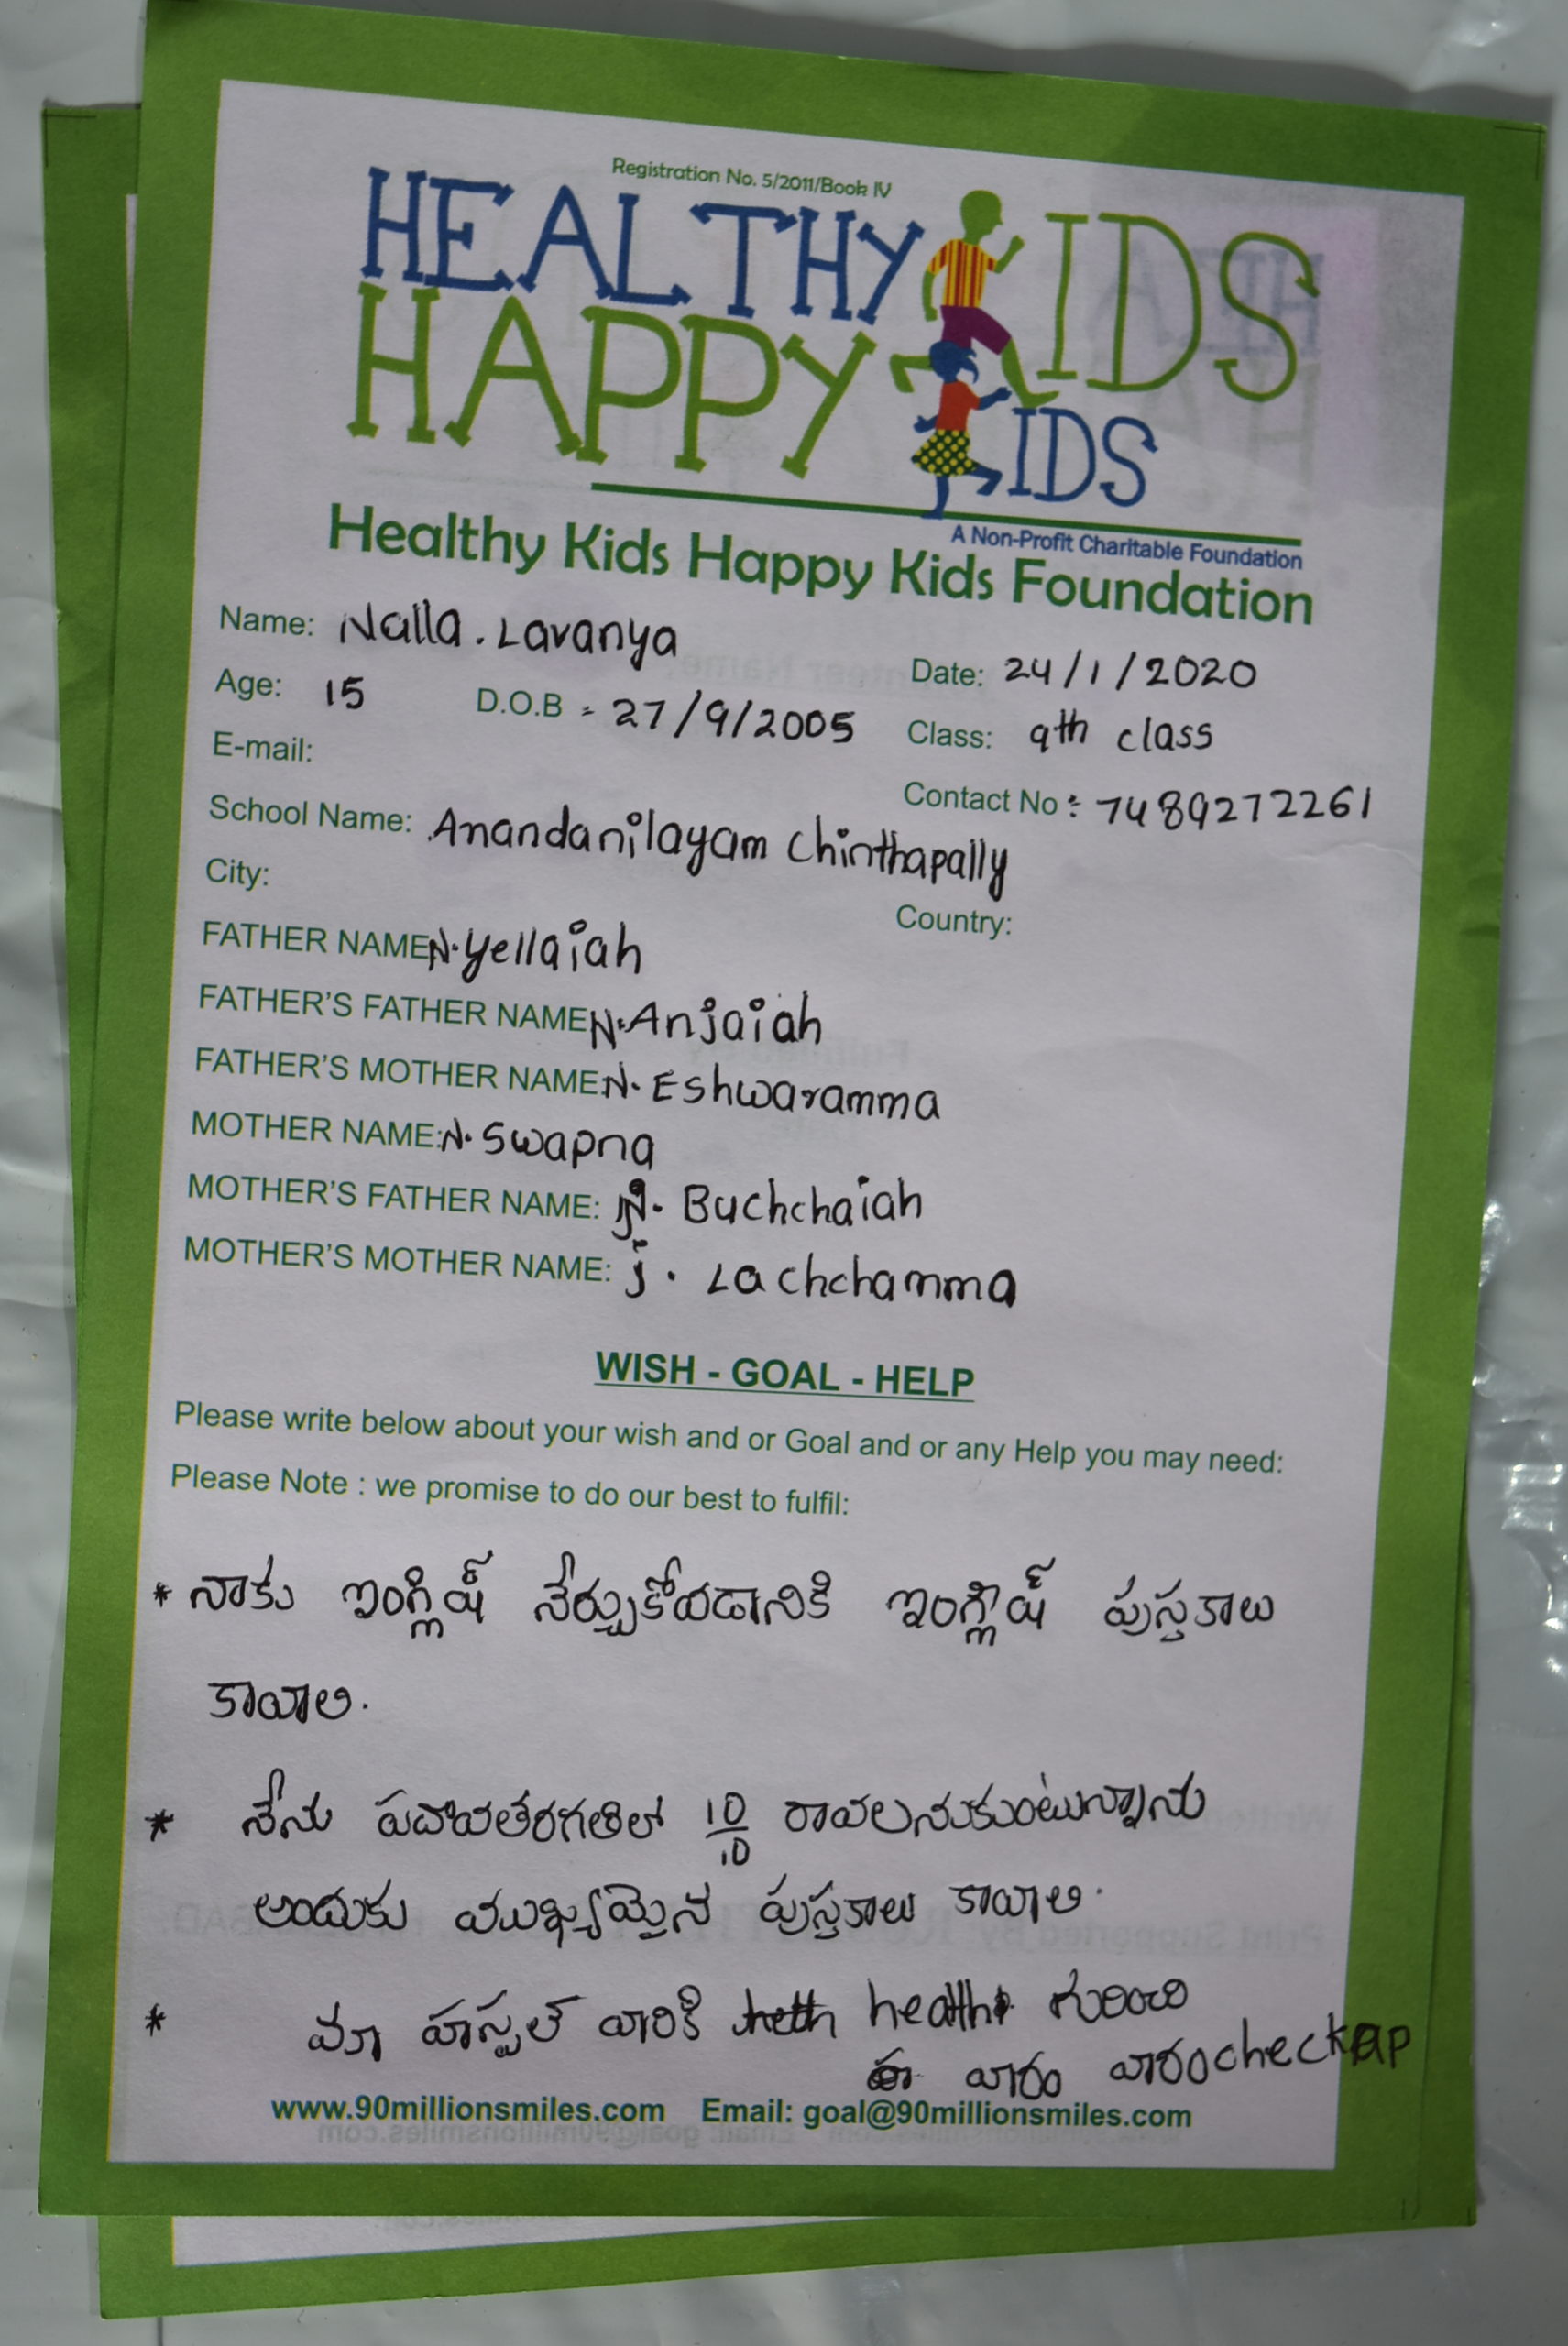 Registration No. 5/2011/Book IV
HEALTHY KIDS
HAPPY KIDS
A Non-Profit Charitable Foundation
Healthy Kids Happy Kids Foundation
Name: Nalla. Lavanya Date: 24/1/2020
Age: 15 D.O.B - 27/9/2005 Class: 9th class
E-mail: Contact No: 7489272261
School Name: Anandanilayam Chinthapally
City: Country:
FATHER NAME N. Yellaiah
FATHER'S FATHER NAME N. Anjaiah
FATHER'S MOTHER NAME: N. Eshwaramma
MOTHER NAME: N. Swapna
MOTHER'S FATHER NAME: J. Buchchaiah
MOTHER'S MOTHER NAME: j. Lachchamma
WISH - GOAL - HELP
Please write below about your wish and or Goal and or any Help you may need:
Please Note : we promise to do our best to fulfil:
* నాకు ఇంగ్లిష్ నేర్చుకోవడానికి ఇంగ్లిష్ పుస్తకాలు
కావాలి.
* నేను పదోవతరగతిలో 10/10 రావలనుకుంటున్నాను
అందుకు ముఖ్యమైన పుస్తకాలు కావాలి.
* మా హస్టల్ వారికి health గురించి
వారం వారం checkup
www.90millionsmiles.com Email: goal@90millionsmiles.com